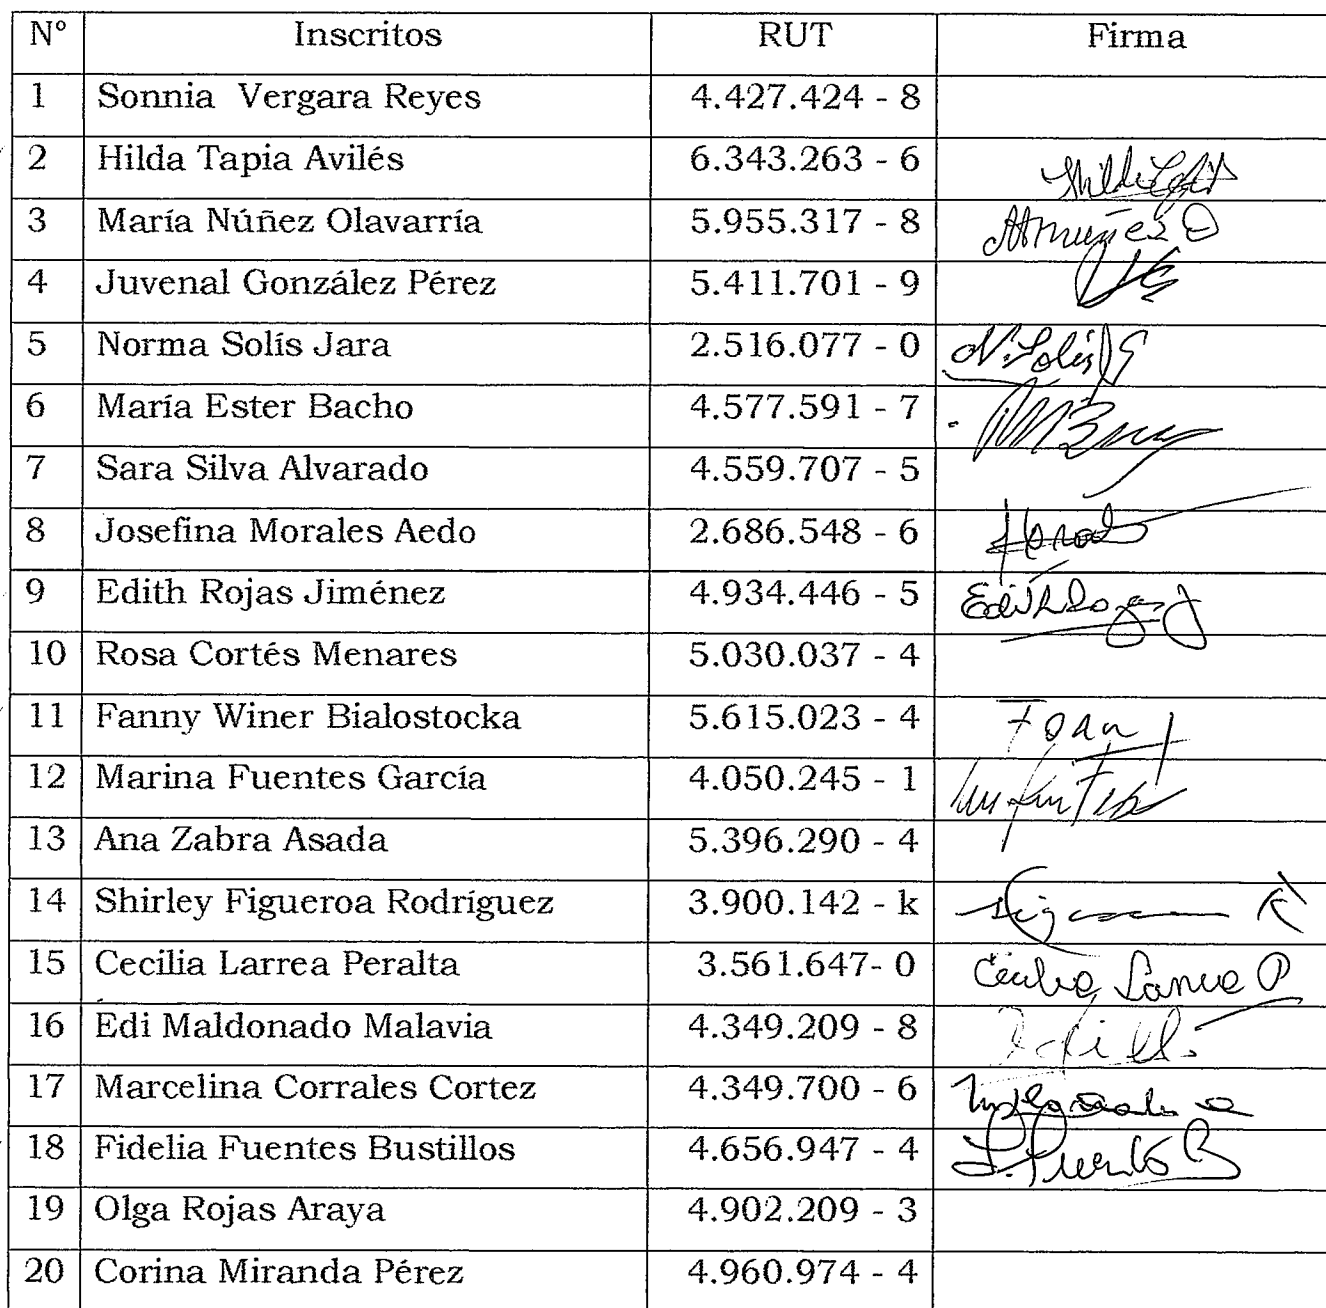 Nº Inscritos RUT Firma
1 Sonnia Vergara Reyes 4.427.424 - 8
2 Hilda Tapia Avilés 6.343.263 - 6
3 María Núñez Olavarría 5.955.317 - 8
4 Juvenal González Pérez 5.411.701 - 9
5 Norma Solís Jara 2.516.077 - 0 N. Solís J
6 María Ester Bacho 4.577.591 - 7
7 Sara Silva Alvarado 4.559.707 - 5
8 Josefina Morales Aedo 2.686.548 - 6
9 Edith Rojas Jiménez 4.934.446 - 5 Edith Rojas J
10 Rosa Cortés Menares 5.030.037 - 4
11 Fanny Winer Bialostocka 5.615.023 - 4
12 Marina Fuentes García 4.050.245 - 1
13 Ana Zabra Asada 5.396.290 - 4
14 Shirley Figueroa Rodríguez 3.900.142 - k
15 Cecilia Larrea Peralta 3.561.647- 0 Cecilia Larrea P
16 Edi Maldonado Malavia 4.349.209 - 8
17 Marcelina Corrales Cortez 4.349.700 - 6
18 Fidelia Fuentes Bustillos 4.656.947 - 4
19 Olga Rojas Araya 4.902.209 - 3
20 Corina Miranda Pérez 4.960.974 - 4